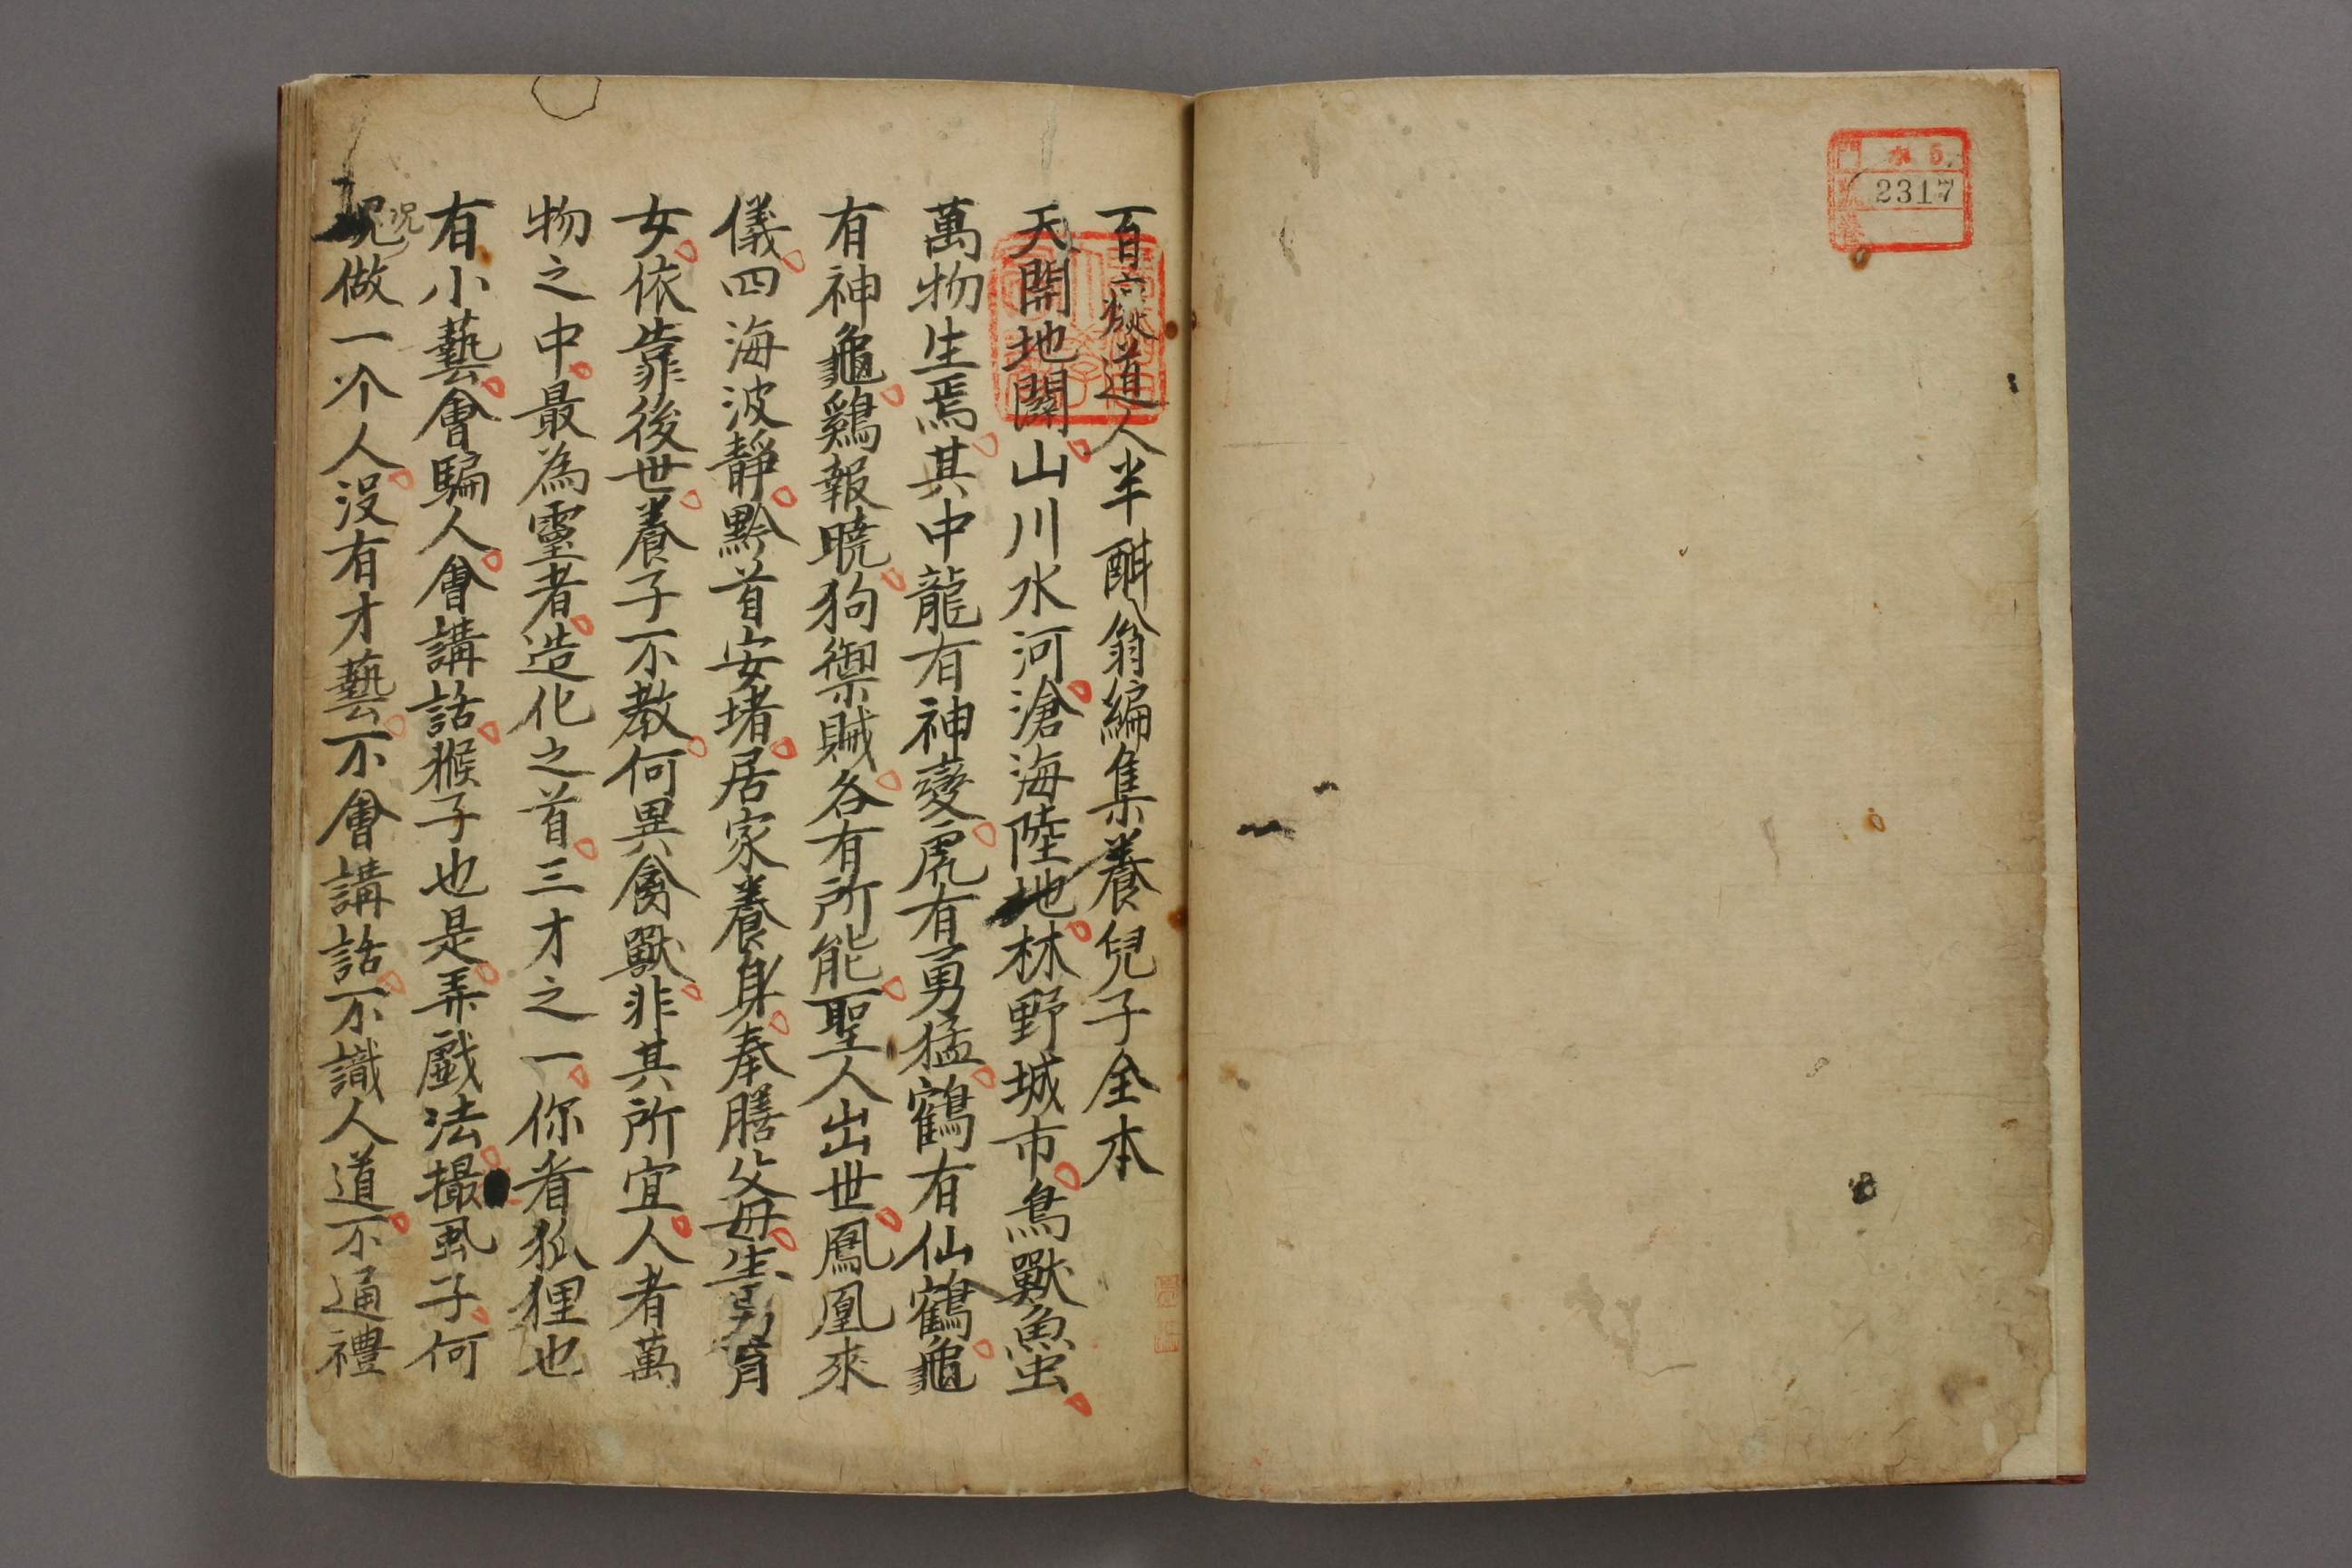 水 5
2317
百六㺞道人半酣翁編集養兒子全本
天開地闢山川水河滄海陸地林野城市鳥獸魚虫
萬物生焉其中龍有神變虎有勇猛鶴有仙鶴龜
有神龜鷄報曉狗禦賊各有所能聖人出世鳳凰來
儀四海波靜黔首安堵居家養身奉膳父母生男育
女依靠後世養子不教何異禽獸非其所宜人者萬
物之中最為靈者造化之首三才之一你看狐狸也
有小藝會騙人會講話猴子也是弄戲法撮虱子何
况做一个人沒有才藝不會講話不識人道不通禮
况